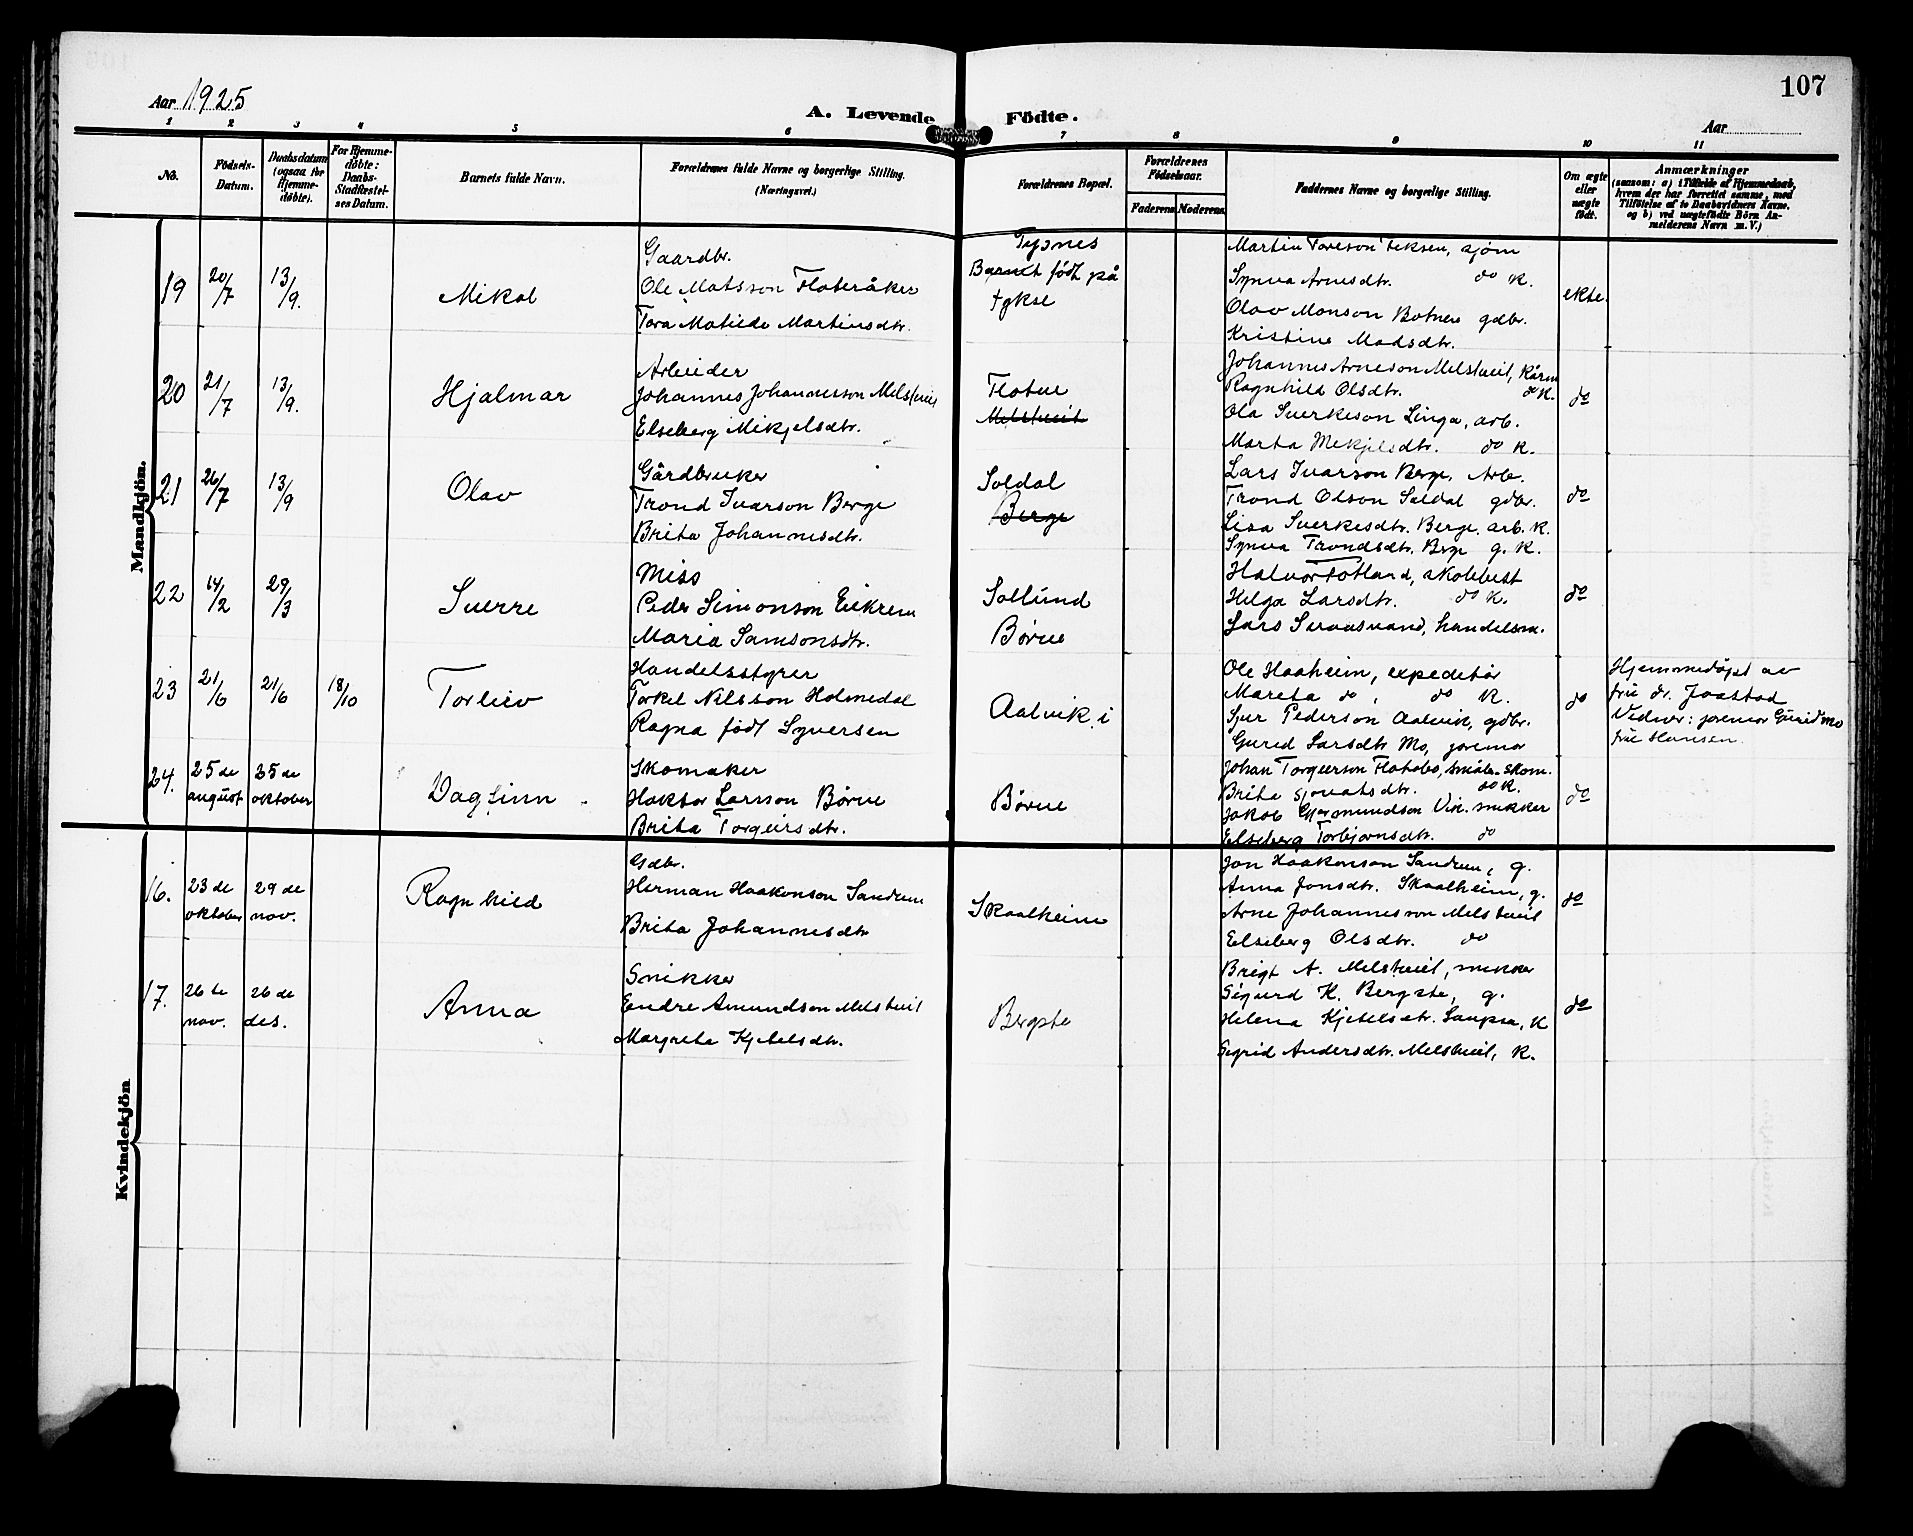 107
Aar 1925
A. Levende Födte.
Aar
1 2 3 4 5 6 7 8 9 10 11
No.
Födsels-Datum.
Daabsdatum (ogsaa for Hjemme-döbte).
For Hjemme-döbte: Daabs-Stadfæstel-ses Datum.
Barnets fulde Navn.
Forældrenes fulde Navne og borgerlige Stilling. (Næringsvei.)
Forældrenes Bopæl.
Forældrenes Födselsaar.
Faderens. Moderens.
Faddernes Navne og borgerlige Stilling.
Om ægte eller uægte födt.
Anmærkninger
(saasom: a) i Tilfælde af Hjemmedaab, hvem der har forrettet samme, med Tilföielse af to Daabsvidners Navne, og b) ved uægtefödte Börn Anmelderens Navn m. V.)
Mandkjön.
19 20/7 13/9.
Mikal
Gaardbr.
Ole Matsson Flateråker
Tora Matilde Martinsdtr.
Tysnes
Barnet födt på
Tykse
Martin Toreson Teksen, sjöm
Synva Arnesdtr. do k.
Olav Monson Botnen gdbr.
Kristine Madsdtr.
ekte.
20 21/7 13/9.
Hjalmar
Arbeider
Johannes Johannesson Melstveit
Elseberg Mikjelsdtr.
Flatue
Melstveit
Johannes Arneson Melstveit, kårm
Ragnhild Olsdtr. do k.
Ola Sverkeson Linga, arb.
Marta Mekjelsdtr. do k.
do
21 26/7 13/9
Olav
Gårdbruker
Trond Ivarson Berge
Brita Johannesdtr.
Soldal
Berge
Lars Ivarson Berge, Arb.
Trond Olson Soldal gdbr.
Lisa Sverkesdtr. Berge, arb. k.
Synva Trondsdtr. Berge g. k.
do
22 14/2 29/3
Sverre
Miss
Peder Simonson Eikrem
Maria Samsonsdtr.
Sollund
Børve
Halvor Totland, skolebest
Helga Larsdtr. do k.
Lars Svaasand, handelsm.
do
23 21/6 21/6 18/10
Torleiv
Handelsstyrer
Torkel Nilsson Holmedal
Ragna født Syversen
Aalvik i
Ole Haaheim, expeditör
Mareta do, do k.
Sjur Pederson Aalvik, gdbr.
Gurid Larsdtr Mo, joremor
do
Hjemmedöpt av
fru dr. Jaastad
Vidner: joremor Gurid Mo
frue Hansen.
24. 25 de august 25 de oktober
Dagfinn
Skomaker
Haktor Larsson Børve
Brita Torgeirsdtr.
Børve
Johan Torgeirson Flatabø, småbr. skom.
Brita Sjovatsdtr. do k.
Jakob Germundson Vik. snikker
Elseberg Torbjørnsdtr. do
do
Kvindekjön
16. 23 de oktober 29 de nov.
Ragnhild
Gdbr.
Herman Haakonson Sandven
Brita Johannesdtr
Skaalheim
Jon Haakonson Sandven, g.
Anna Jonsdtr. Skaalheim, g.
Arne Johannesson Melstveit
Elseberg Olsdtr. do
do
17. 26 te nov. 26 de des.
Anna
Snikker
Endre Amundson Melstveit
Margreta Kjetelsdtr.
Bergste
Brigt A. Melstveit, snikker
Sigurd K. Bergste, g.
Helena Kjetelsdtr. Laupsa, k
Sigrid Andersdtr. Melstveit, k.
do